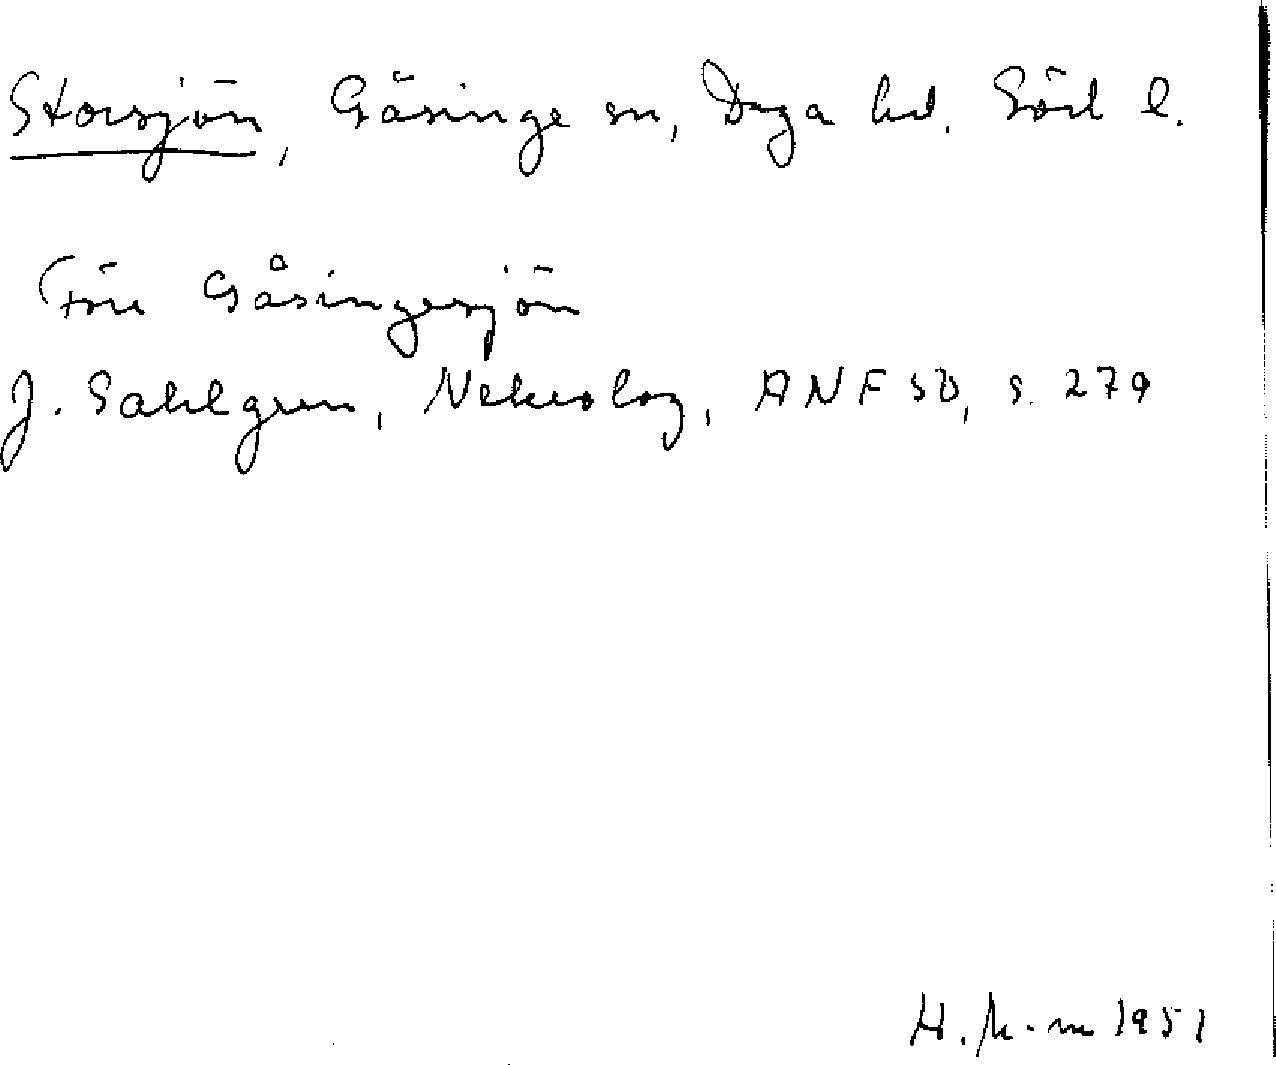 Storsjön, Gåsinge sn, Daga hd. Södl l.
Före Gåsingesjön
J. Sahlgren, Nekrolog, ANF 50, s. 279
1951